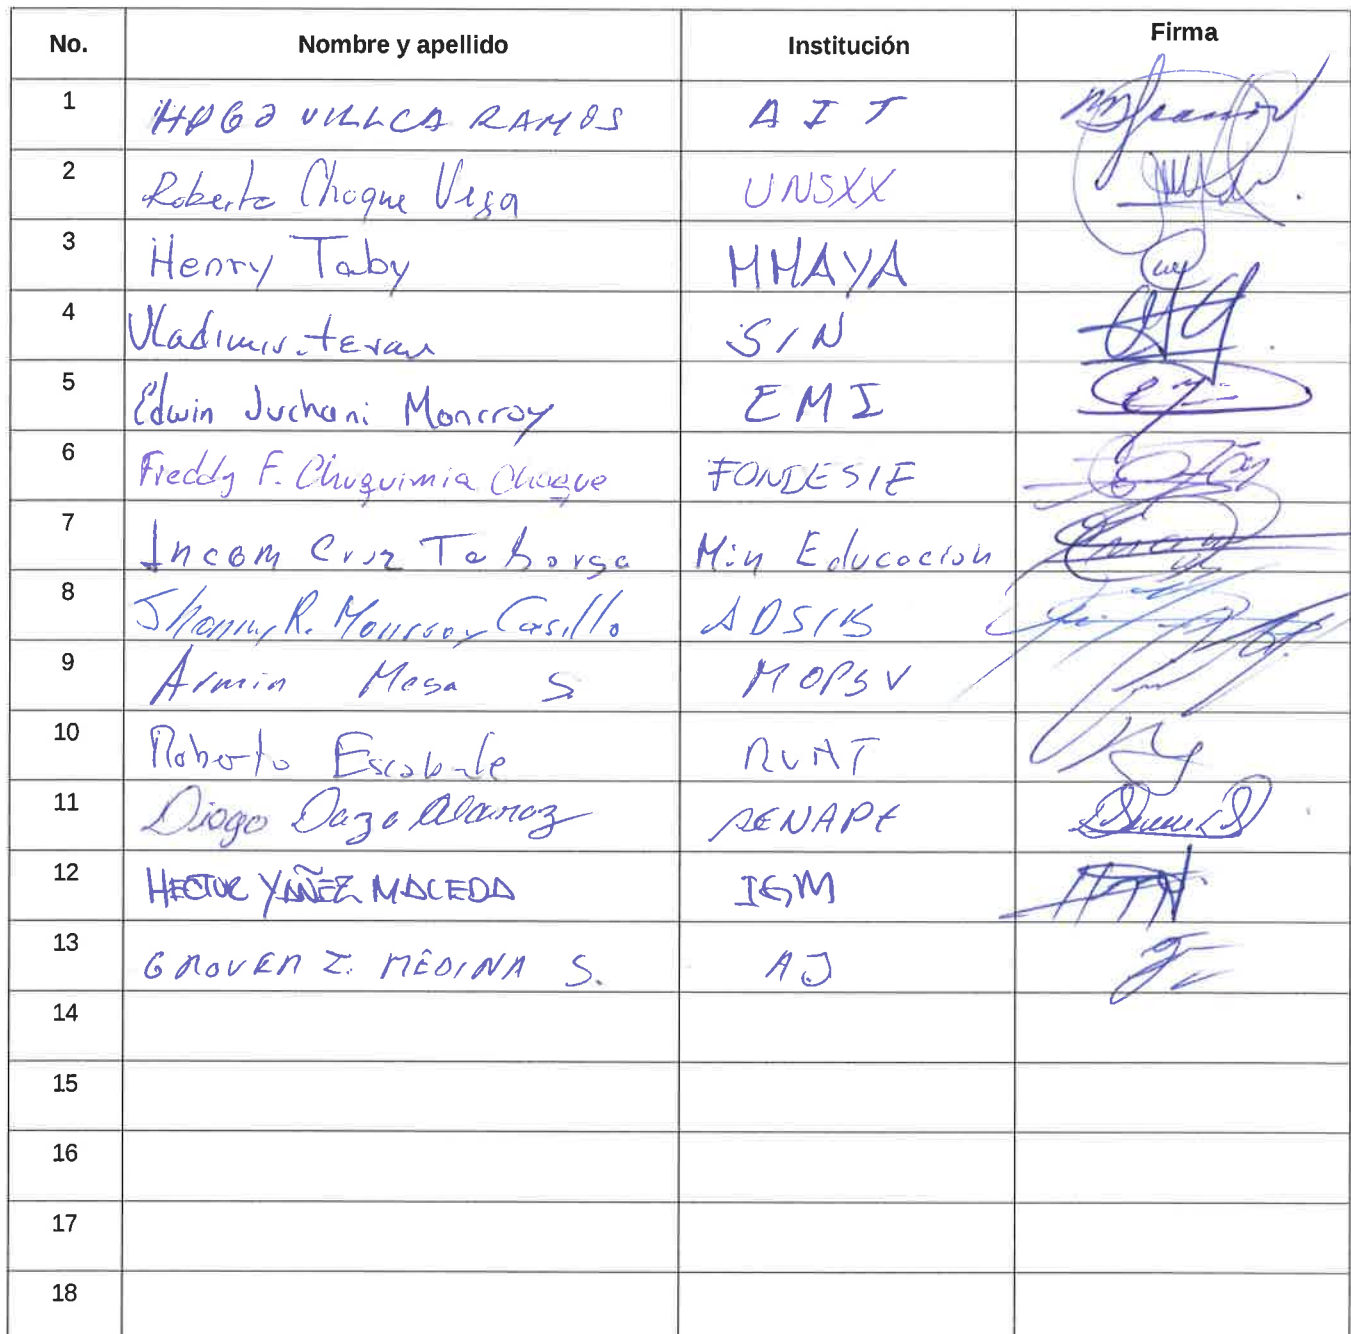 No. Nombre y apellido Institución Firma
1 HUGO VILLCA RAMOS AIT
2 Roberto Choque Vega UNSXX
3 Henry Taby MMAYA
4 Vladimir teran SIN
5 Edwin Juchani Moncroy EMI
6 Freddy F. Chuquimia Choque FONDESIF
7 Incom Cruz Taborga Min Educacion
8 Jhonny R. Monrroy Casillo ADSIB
9 Armin Mesa S. MOPSV
10 Roberto RUAT
11 Diego Daza Alvarez SENAPE
12 HECTOR YAÑEZ MACEDA IGM
13 GROVER Z. MEDINA S. AJ
14
15
16
17
18